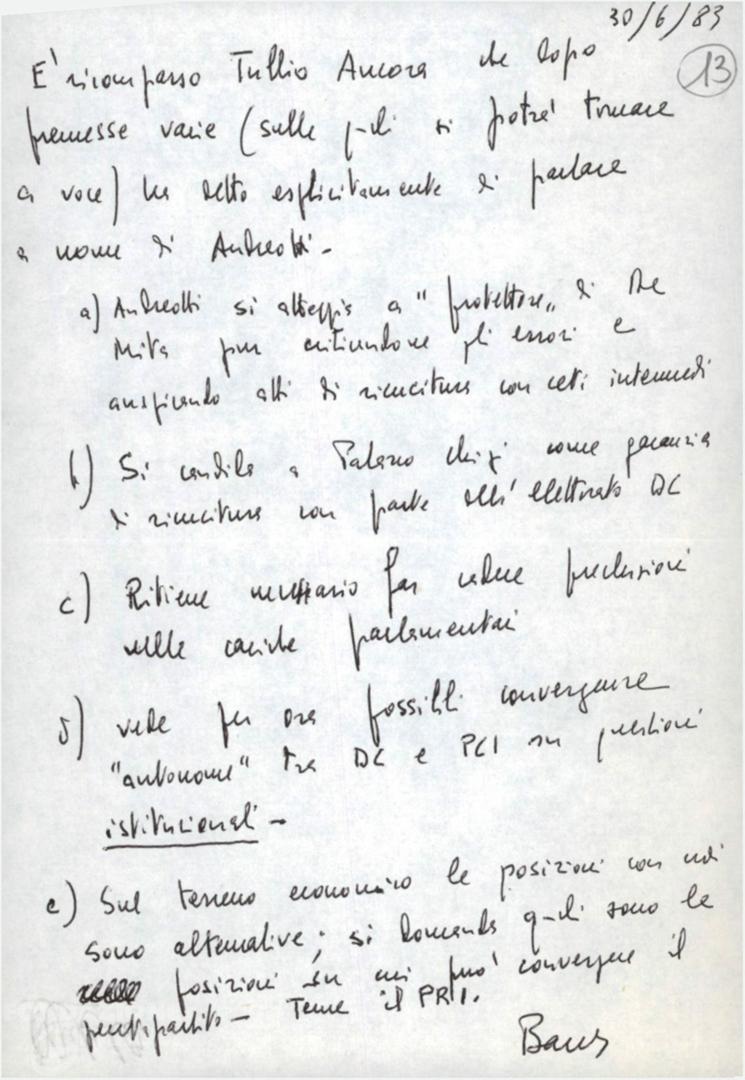 30/6/83
13
E' ricomparso Tullio Ancora che dopo
premesse varie (sulle quali si potrà tornare
a voce) ha detto esplicitamente di parlare
a nome di Andreotti -
a) Andreotti si atteggia a "protettore" di De
Mita pur criticandone gli errori e
auspicando atti di ricucitura con ceti intermedi
b) Si candida a Palazzo Chigi come garanzia
di ricucitura con parte dell'elettorato DC
c) Ritiene necessario far cadere preclusioni
nelle cariche parlamentari
d) vede per ora possibili convergenze
"autonome" tra DC e PCI su questioni
istituzionali -
e) Sul terreno economico le posizioni con noi
sono alternative; si domanda quali sono le
posizioni su cui può convergere il
pentapartito - Teme il PRI.